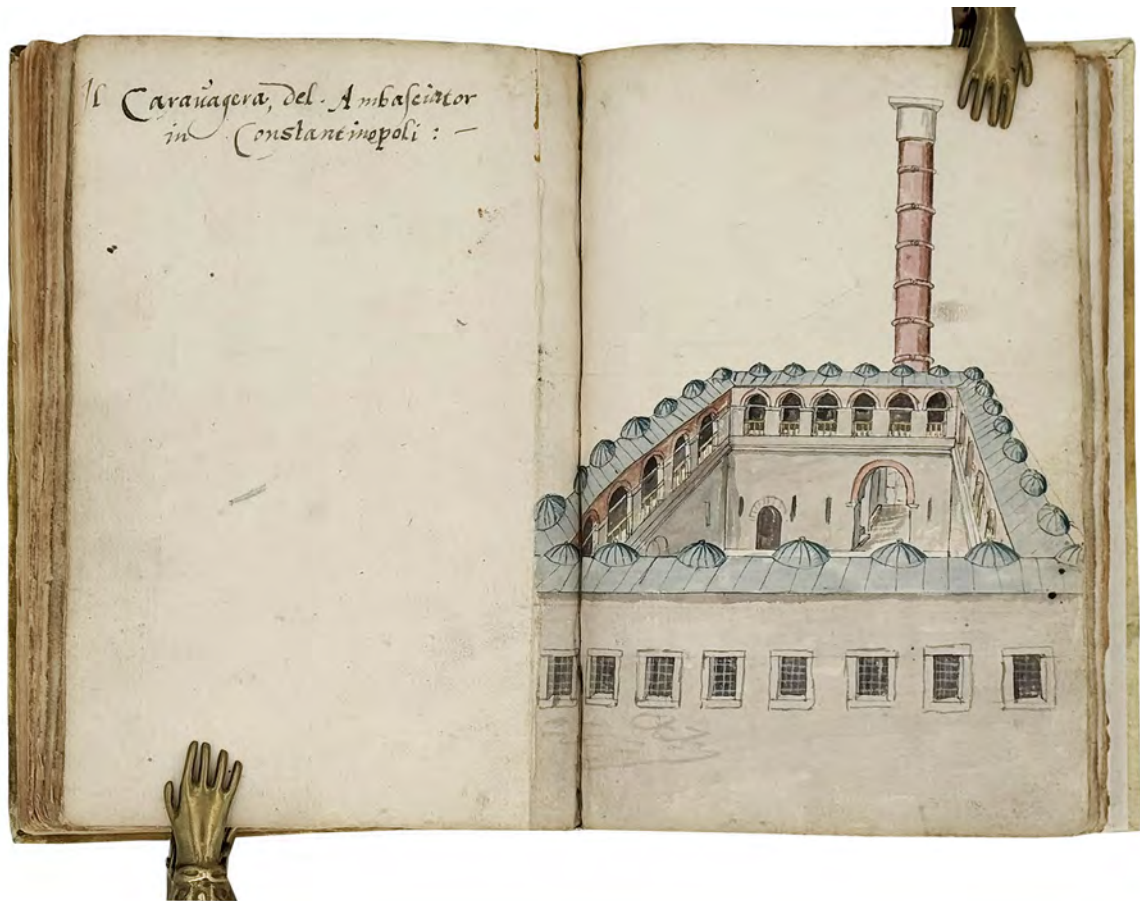 Il Carauagera, del Ambasciator
in Constantinopoli : –